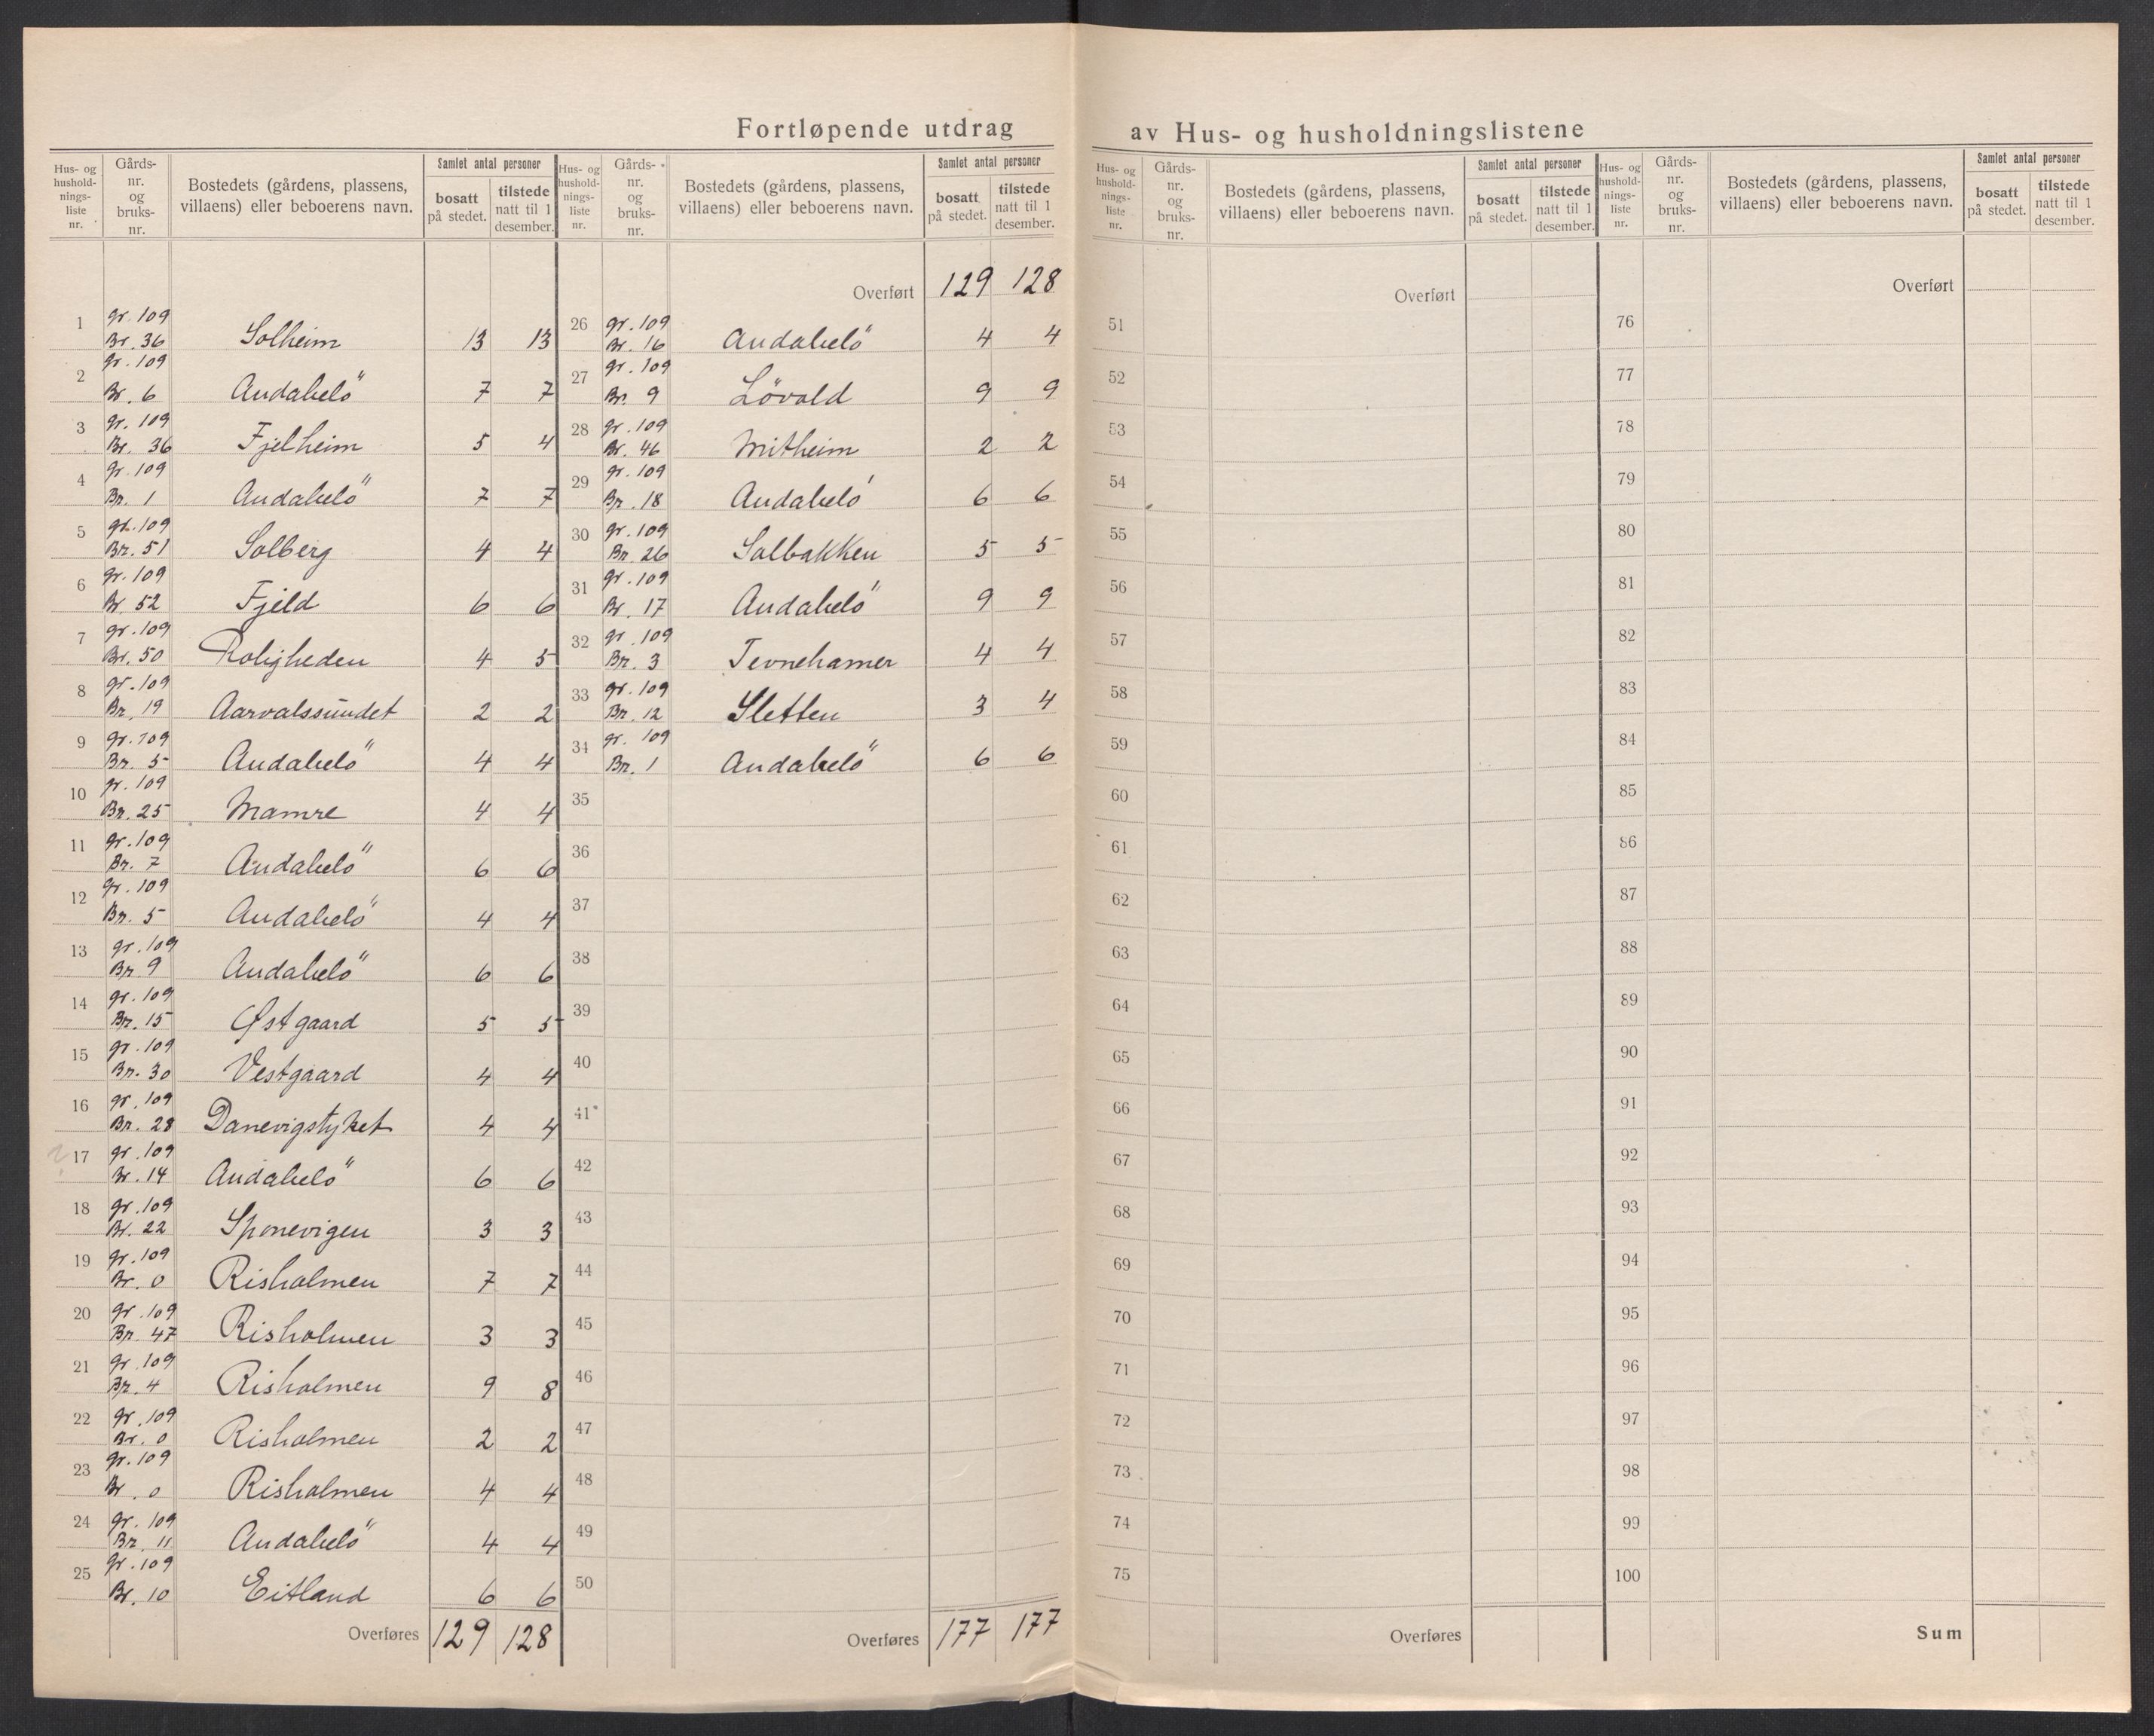 Fortløpende utdrag av Hus- og husholdningslistene
Hus- og hushold- nings- liste nr. | Gårds- nr. og bruks- nr. | Bostedets (gårdens, plassens, villaens) eller beboerens navn. | Samlet antal personer | bosatt på stedet. | tilstede natt til 1 desember.
1 gr. 109 Br. 36 Solheim 13 13
2 gr. 109 Br. 6 Andabelö 7 7
3 gr. 109 Br. 36 Fjelheim 5 4
4 gr. 109 Br. 1 Andabelö 7 7
5 gr. 109 Br. 51 Solberg 4 4
6 gr. 109 Br. 52 Fjeld 6 6
7 gr. 109 Br. 50 Roligheden 4 5
8 gr. 109 Br. 19 Aarvalssundet 2 2
9 gr. 109 Br. 5 Andabelö 4 4
10 gr. 109 Br. 25 Mamre 4 4
11 gr. 109 Br. 7 Andabelö 6 6
12 gr. 109 Br. 5 Andabelö 4 4
13 gr. 109 Br. 9 Andabelö 6 6
14 gr. 109 Br. 15 Østgaard 5 5
15 gr. 109 Br. 30 Vestgaard 4 4
16 gr. 109 Br. 28 Danevigstyket 4 4
17 gr. 109 Br. 14 Andabelö 6 6
18 gr. 109 Br. 22 Sponevigen 3 3
19 gr. 109 Br. 0 Risholmen 7 7
20 gr. 109 Br. 47 Risholmen 3 3
21 gr. 109 Br. 4 Risholmen 9 8
22 gr. 109 Br. 0 Risholmen 2 2
23 gr. 109 Br. 0 Risholmen 4 4
24 gr. 109 Br. 11 Andabelö 4 4
25 gr. 109 Br. 10 Eitland 6 6
Overføres 129 128
Hus- og hushold- nings- liste nr. | Gårds- nr. og bruks- nr. | Bostedets (gårdens, plassens, villaens) eller beboerens navn. | Samlet antal personer | bosatt på stedet. | tilstede natt til 1 desember.
Overført 129 128
26 gr. 109 Br. 16 Andabelö 4 4
27 gr. 109 Br. 9 Lövold 9 9
28 gr. 109 Br. 46 Mitheim 2 2
29 gr. 109 Br. 18 Andabelö 6 6
30 gr. 109 Br. 26 Solbakken 5 5
31 gr. 109 Br. 17 Andabelö 9 9
32 gr. 109 Br. 3 Tevnehamer 4 4
33 gr. 109 Br. 12 Sletten 3 4
34 gr. 109 Br. 1 Andabelö 6 6
35
36
37
38
39
40
41
42
43
44
45
46
47
48
49
50
Overføres 177 177
Hus- og hushold- nings- liste nr. | Gårds- nr. og bruks- nr. | Bostedets (gårdens, plassens, villaens) eller beboerens navn. | Samlet antal personer | bosatt på stedet. | tilstede natt til 1 desember.
Overført
51
52
53
54
55
56
57
58
59
60
61
62
63
64
65
66
67
68
69
70
71
72
73
74
75
Overføres
Hus- og hushold- nings- liste nr. | Gårds- nr. og bruks- nr. | Bostedets (gårdens, plassens, villaens) eller beboerens navn. | Samlet antal personer | bosatt på stedet. | tilstede natt til 1 desember.
Overført
76
77
78
79
80
81
82
83
84
85
86
87
88
89
90
91
92
93
94
95
96
97
98
99
100
Sum